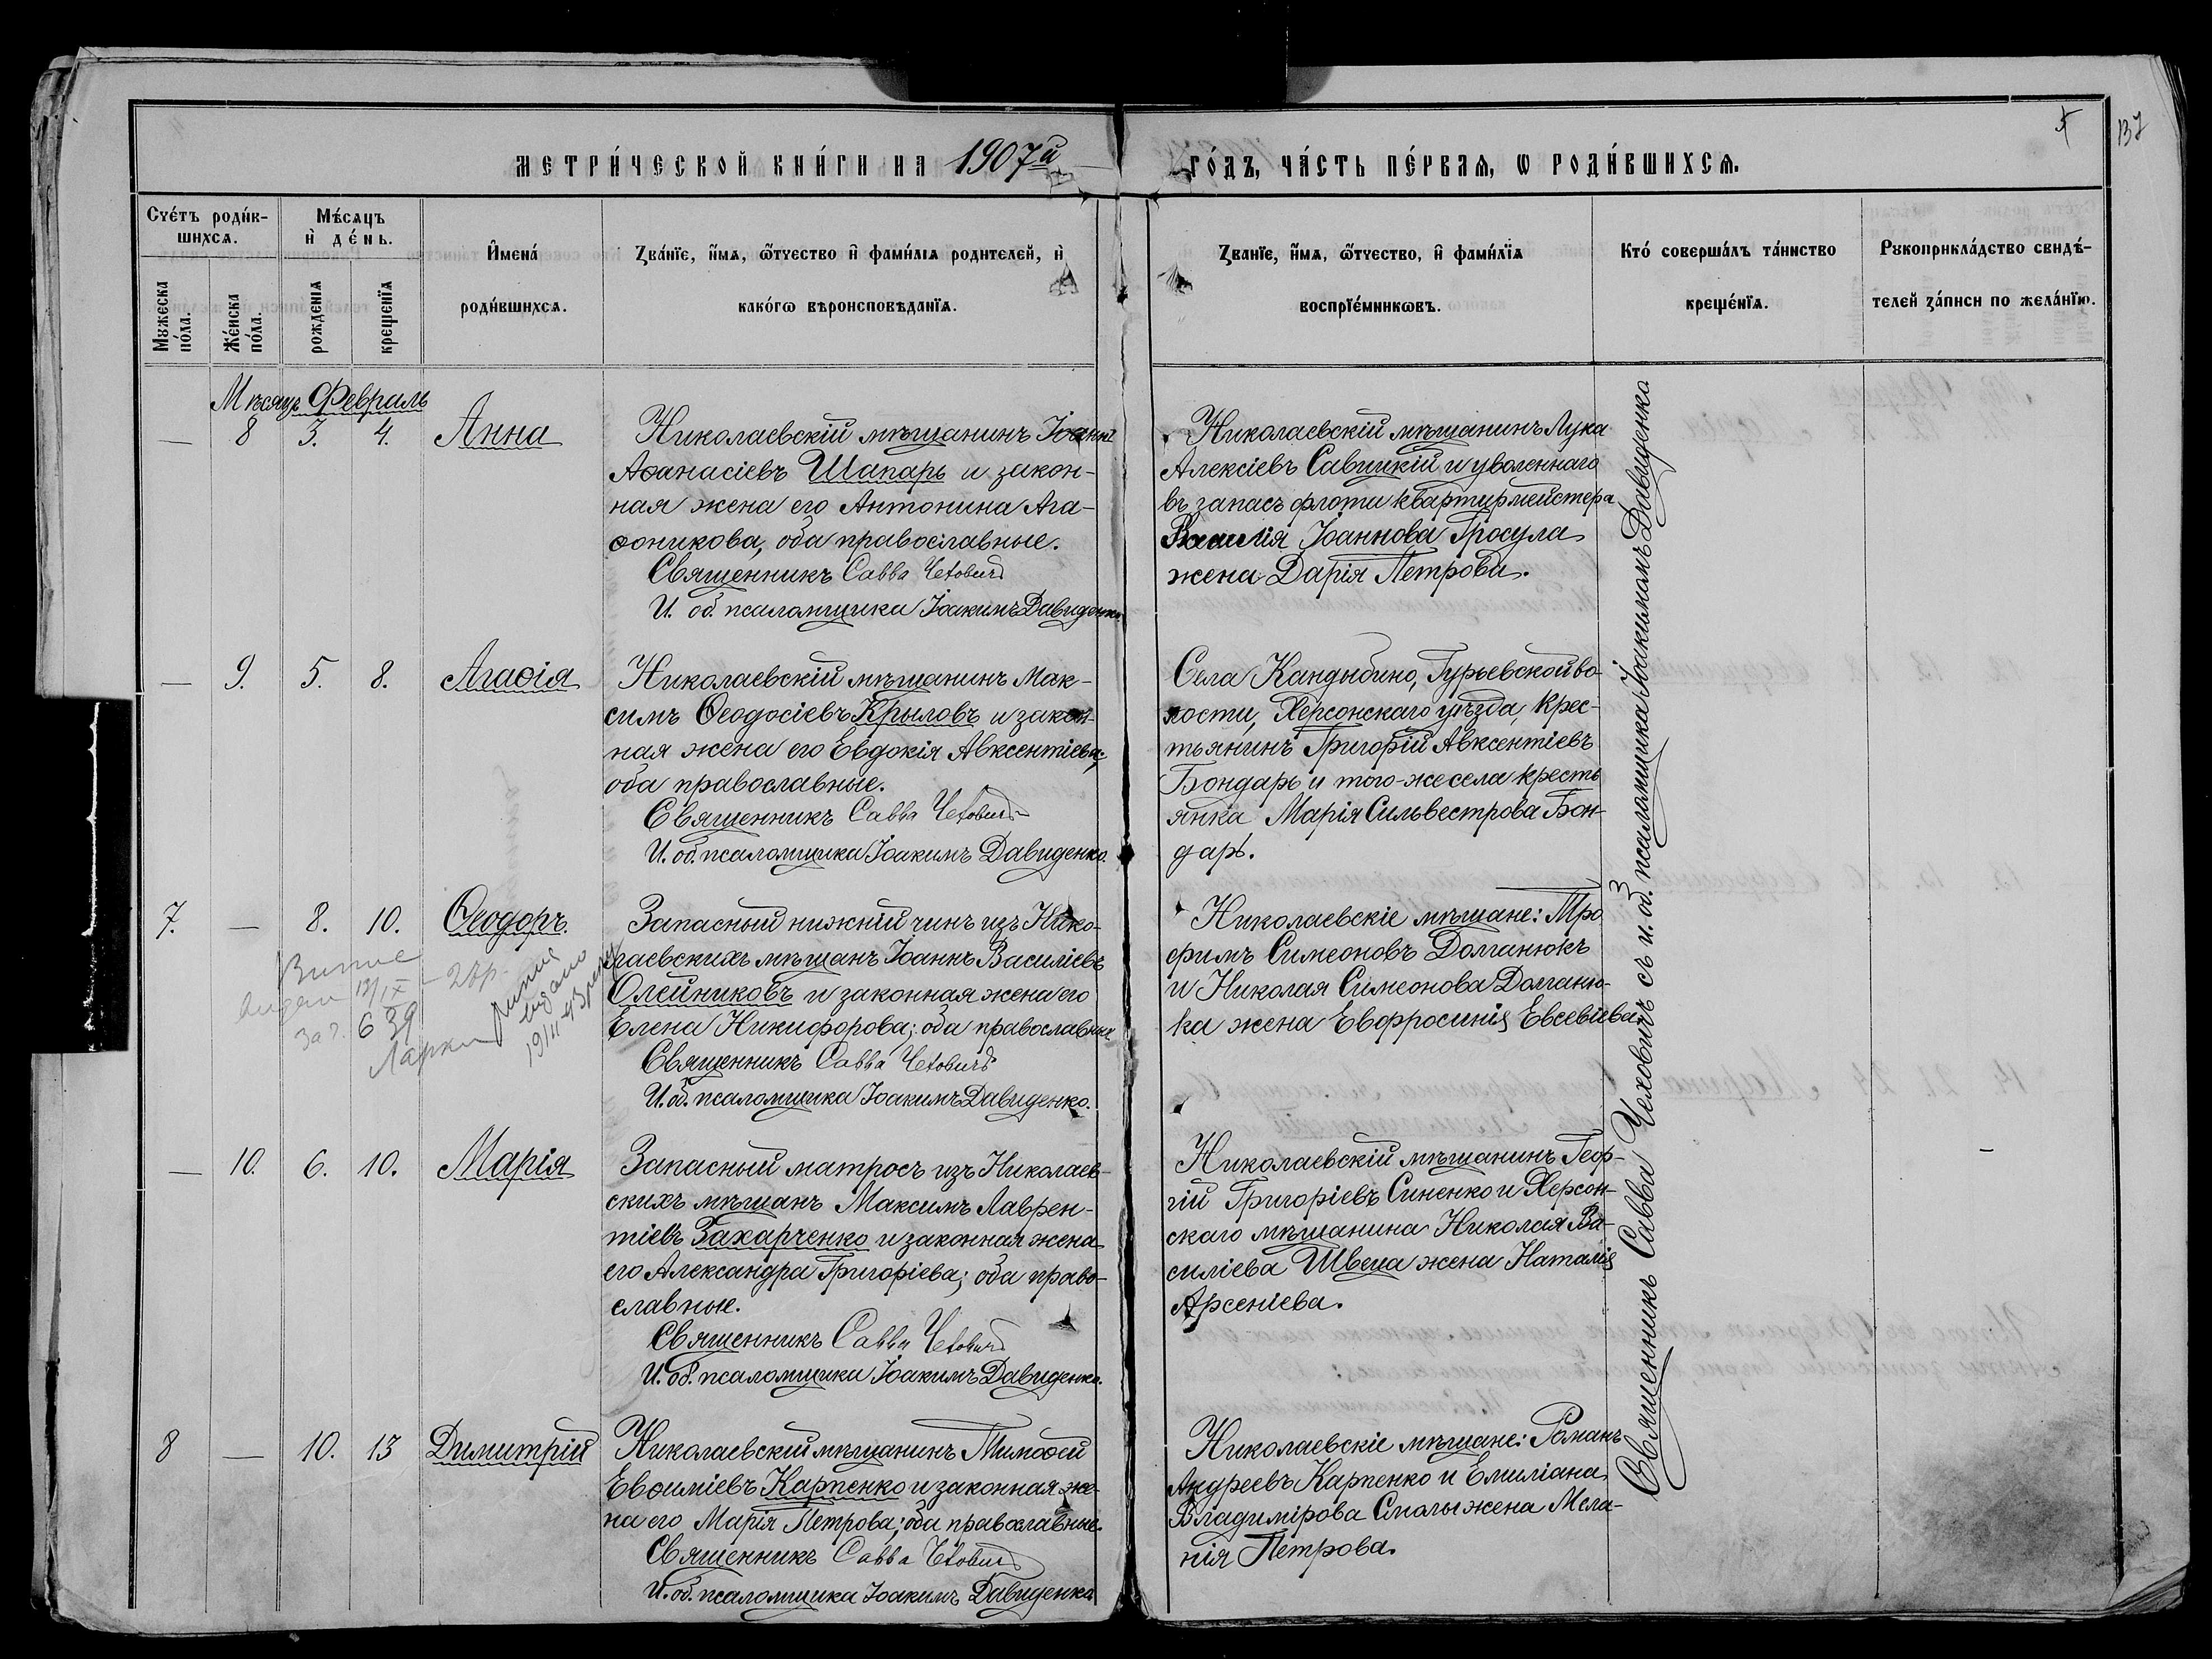 метри́ческой кни́ги на 1907й го́дъ, ча́сть пе́рвая, ѡ роди́вшихсѧ.
137
Сче́тъ роди́в-
шихсѧ.
Мꙋжеска по́ла.
Же́нска по́ла.
Мѣ́сѧцъ
и҆ де́нь.
рожденїѧ
крещенїѧ
И҆мена́
роди́вшихсѧ.
Ꙁва́нїе, и҆́мѧ, ѻ҆́тчество и҆ фами́лїѧ родителей, и҆
како́гѡ вѣроисповѣданїѧ.
Ꙁванїе, и҆́мѧ, ѻ҆́тчество, и҆ фами́лїѧ
воспрїе́мникѡвъ.
Кто́ соверша́лъ та́инство
креще́нїѧ.
Рꙋкоприкла́дство свидѣ́-
телей ꙁа́писи по жела́нїю.
Мѣсяцъ Февраль
— 8 3. 4. Анна
Николаевскій мѣщанинъ Іоаннъ
Аѳанасіевъ Шапарь и закон-
ная жена его Антонина Ага-
ѳоникова, оба православные.
Священникъ Савва Чеховичъ
И. об. псаломщика Іоакимъ Давиденко.
Николаевскій мѣщанинъ Лука
Алексіевъ Савицкій и уволеннаго
въ запасъ флота квартирмейстера
Василія Іоаннова Гросула
жена Дарія Петрова.
— 9. 5. 8. Агаѳія
Николаевскій мѣщанинъ Мак-
симъ Ѳеодосіевъ Крыловъ и закон-
ная жена его Евдокія Авксентіева;
оба православные.
Священникъ Савва Чеховичъ
И. об. псаломщика Іоакимъ Давиденко.
Села Кандыбино, Гурьевской во-
лости, Херсонскаго уѣзда, крес-
тьянинъ Григорій Авксентіевъ
Бондарь и того-же села кресть
янка Марія Сильвестрова Бон-
дарь.
7. — 8. 10. Ѳеодоръ.
Запасный нижній чинъ изъ Нико-
лаевскихъ мѣщанъ Іоаннъ Василіевъ
Олейниковъ и законная жена его
Елена Никифорова; оба православные
Священникъ Савва Чеховичъ
И. об. псаломщика Іоакимъ Давиденко.
Николаевскіе мѣщане: Тро
фимъ Симеоновъ Долганюкъ
и Николая Симеонова Долганю-
ка жена Евфросинія Евсевіева.
— 10. 6. 10. Марія
Запасный матросъ изъ Николаев-
скихъ мѣщанъ Максимъ Лаврен-
тіевъ Захарченко и законная жена
его Александра Григоріева; оба право-
славные.
Священникъ Савва Чеховичъ
И. об. псаломщика Іоакимъ Давиденко.
Николаевскій мѣщанинъ Геор-
гій Григоріевъ Синенко и Херсон-
скаго мѣщанина Николая Ва-
силіева Швеца жена Наталія
Арсеніева.
8 — 10. 13 Димитрій
Николаевскій мѣщанинъ Тимоѳей
Евѳиміевъ Карпенко и законная же-
на его Марія Петрова; оба православные.
Священникъ Савва Чеховичъ
И. об. псаломщика Іоакимъ Давиденко
Николаевскіе мѣщане: Романъ
Андреевъ Карпенко и Емиліана
Владимірова Смолы жена Мела-
нія Петрова.
Священникъ Савва Чеховичъ съ и. об. псаломщика Іоакимомъ Давиденко